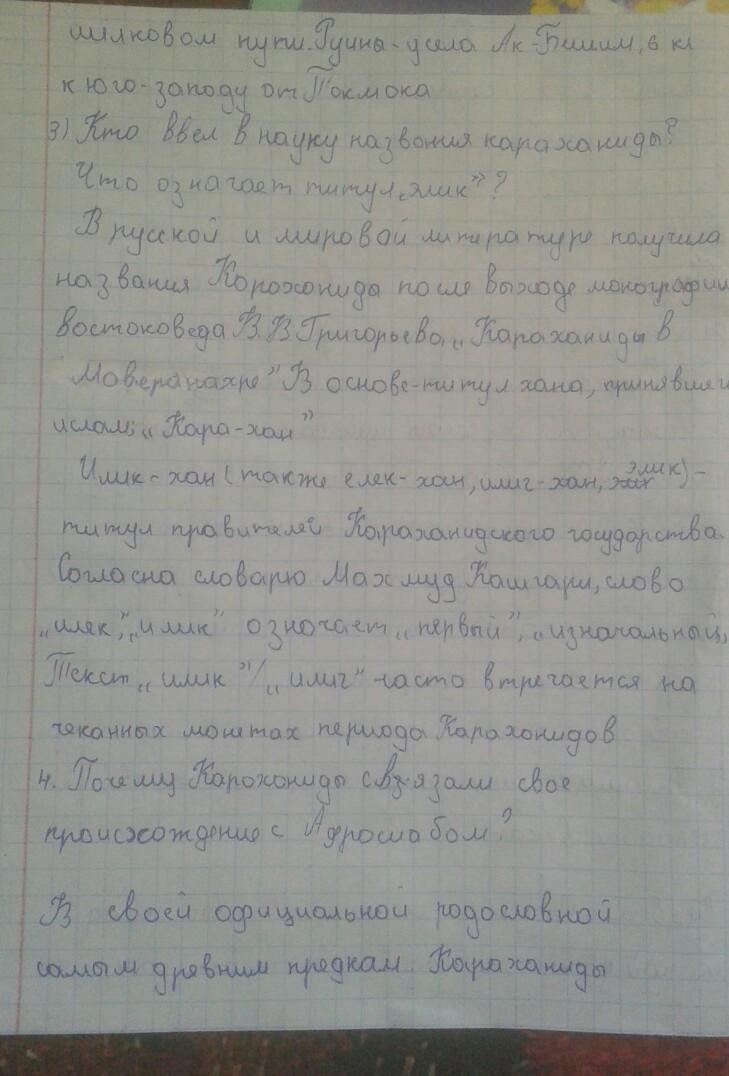 шилковом пути. Руины-у села Ак-Бешим, 6 км
к юго-западу от Токмока
3) Кто ввел в науку названия караханиды?
Что означает титул „элик"?
В русской и мировой литературе получила
названия Карохониды после выходе монографии
востоковеда В.В Григорьева „Караханиды в
Моверанахре" В основе-титул хана, принявшей
ислам; „Кара-хан"
Илик-хан (также елек-хан, илиг-хан, элик) -
титул правителей Караханидского государства.
Согласна словарю Махмуд Кашгари, слово
„илек", „илик" означает „первый", „изначальный,
Текст „илик"/„илиг" часто втречается на
чеканных монетах периода Карахонидов
4. Почему Карохониды связали свое
происхождение с Афросиабом?
В своей официальной родословной
самым древним предкам Караханиды